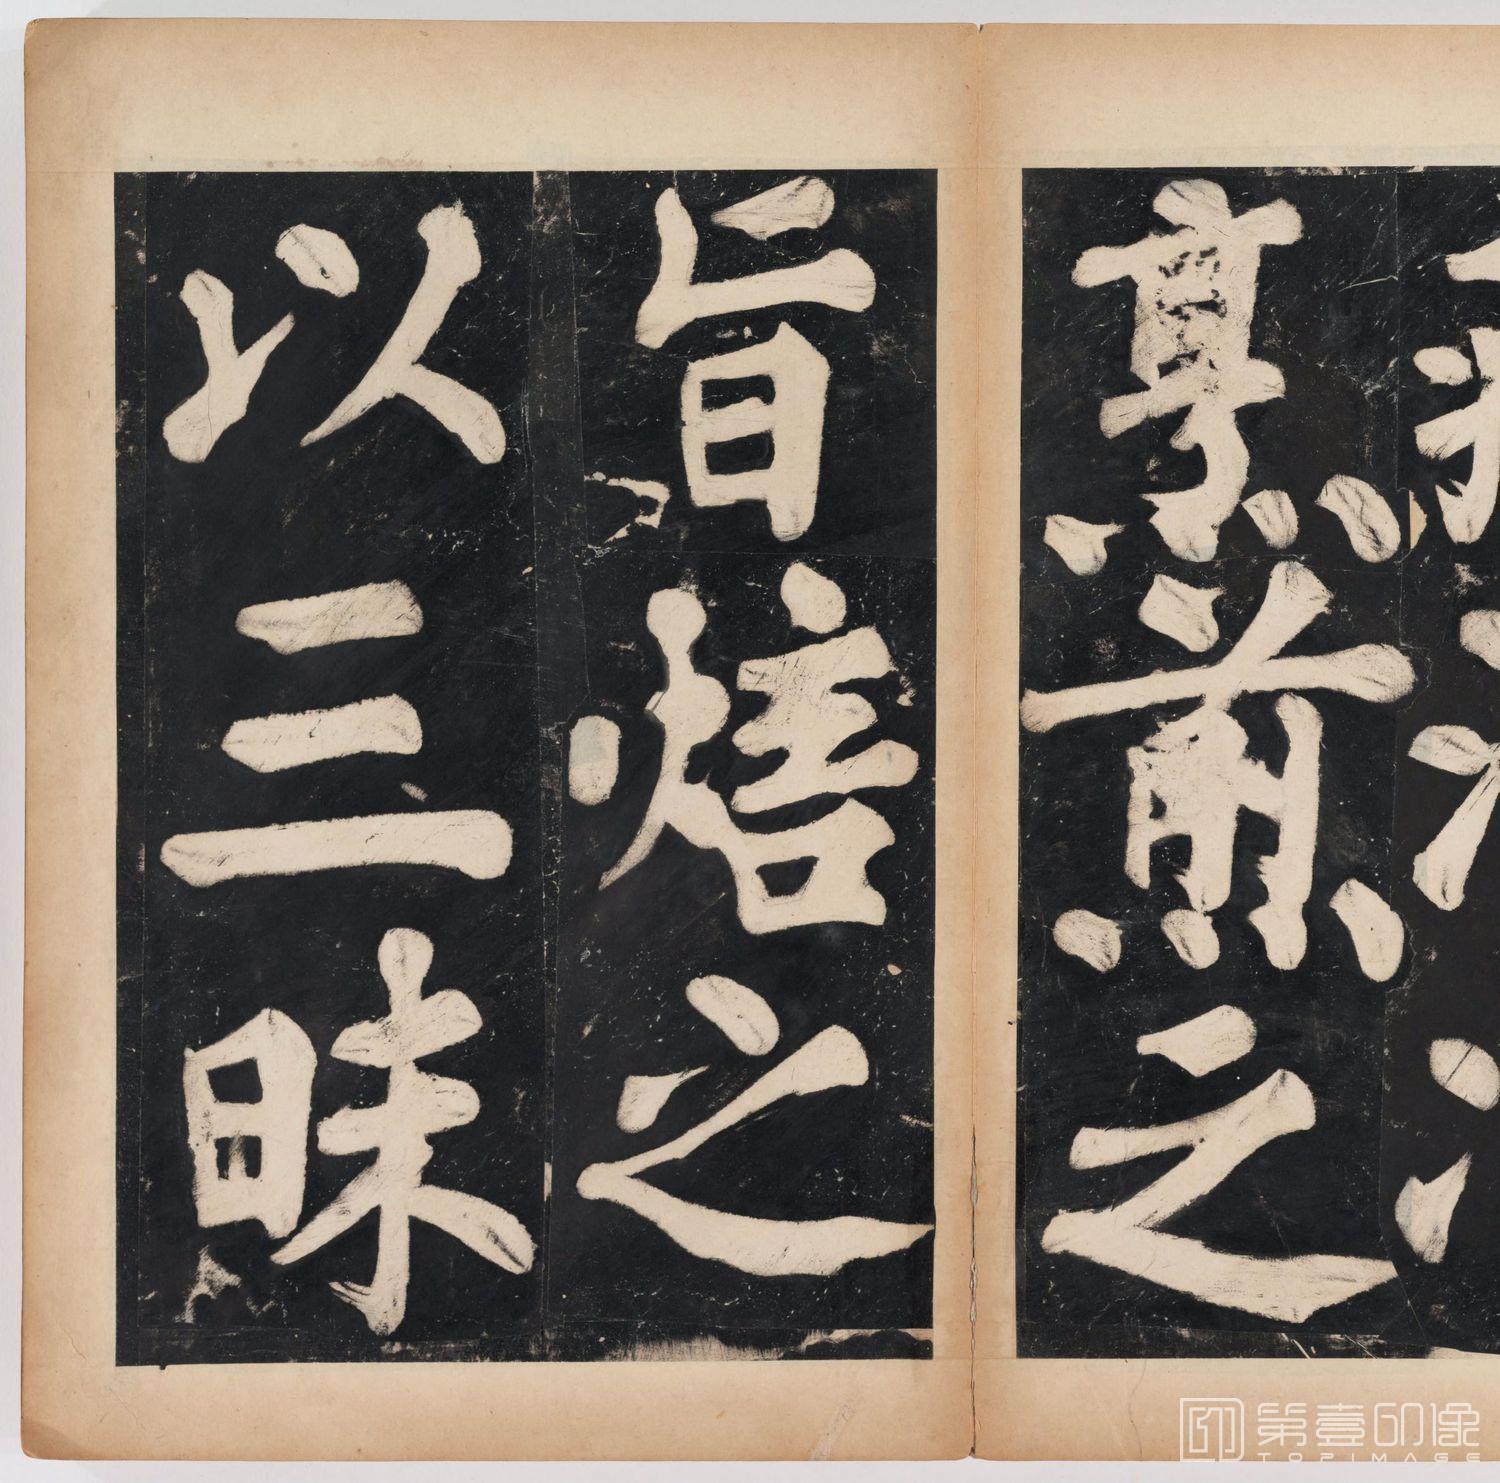 烹煎之
旨焙之
以三昧
第壹印像
TOPIMAGE